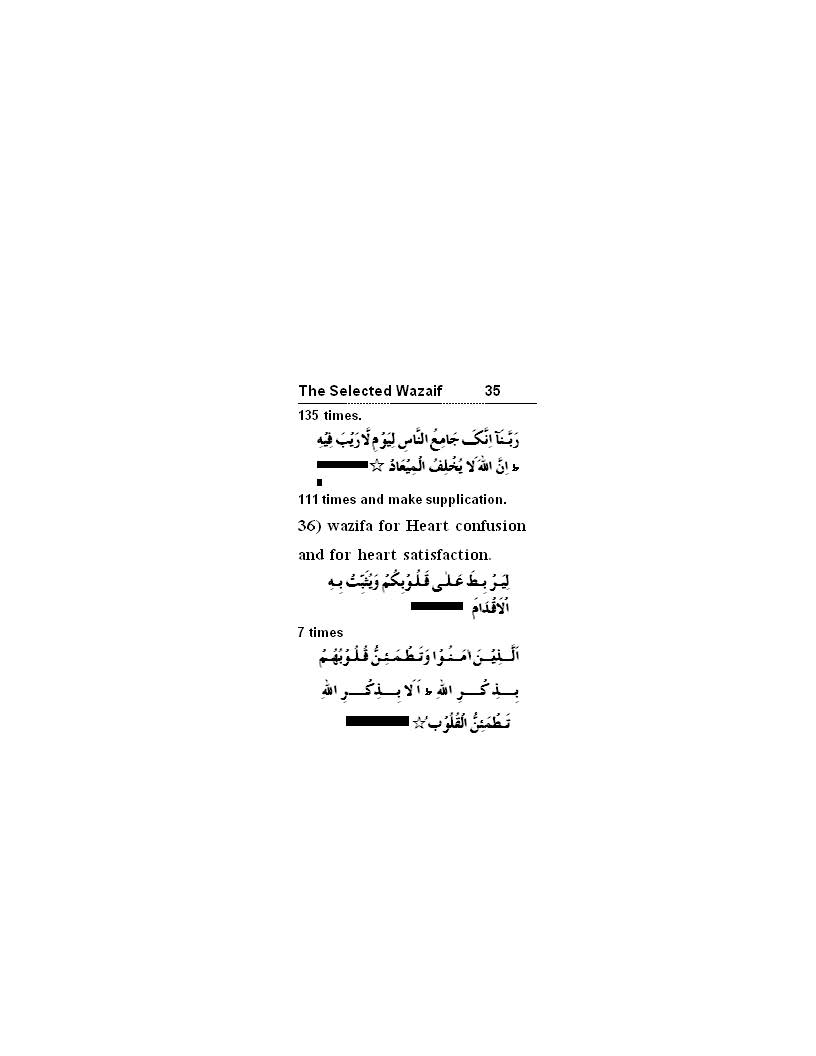 The Selected Wazaif 35
135 times.
رَبَّنَآ اِنَّکَ جَامِعُ النَّاسِ لِيَوْمٍ لَّارَيْبَ فِيْهِ
ط اِنَّ اللّٰهَ لَا يُخْلِفُ الْمِيْعَادَ ☆
111 times and make supplication.
36) wazifa for Heart confusion
and for heart satisfaction.
لِيَرْ بِطَ عَلٰى قُلُوْبِكُمْ وَيُثَبِّتَ بِهِ
الْاَقْدَامَ
7 times
اَلَّذِيْنَ اٰمَنُوْا وَتَطْمَئِنُّ قُلُوْبُهُمْ
بِذِكْرِ اللّٰهِ ط اَلَا بِذِكْرِ اللّٰهِ
تَطْمَئِنُّ الْقُلُوْبُ ☆